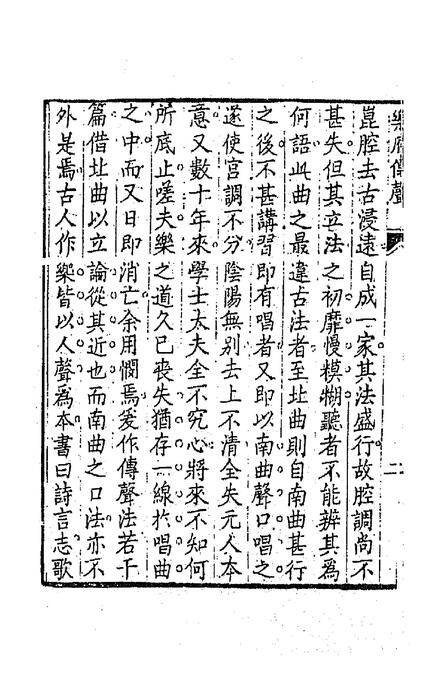 樂府傳聲
二
崑腔去古浸遠自成一家其法盛行故腔調尚不
甚失但其立法之初靡慢模糊聽者不能辨其爲
何語此曲之最違古法者至北曲則自南曲甚行
之後不甚講習即有唱者又即以南曲聲口唱之
遂使宫調不分陰陽無别去上不清全失元人本
意又數十年來學士大夫全不究心將來不知何
所底止嗟夫樂之道久已喪失猶存一線於唱曲
之中而又日即消亡余用憫焉爰作傳聲法若干
篇借北曲以立論從其近也而南曲之口法亦不
外是焉古人作樂皆以人聲爲本書曰詩言志歌